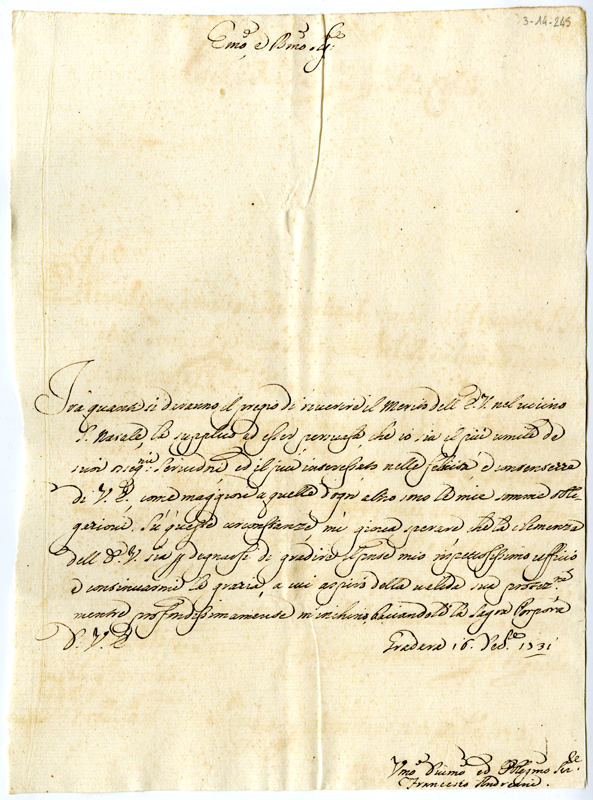 3-14-245
Emo. e Rmo. Sig.re
Tra quanti si daranno il pregio di riverire il merito dell' E.V. nel vicino
S. Natale, la supplico ad esser persuasa che io sia il più umile de
suoi osseq.mi Servidori, ed il più interessato nelle felicità, e contentezze
di V. E. come maggiore a quelle d'ogn' altro sono le mie somme obli-
gazioni. In queste circostanze mi giova sperare che la clemenza
dell' E. V. sia p degnarsi di gradire questo mio rispettosissimo ufficio
e continuarmi la grazia, a cui aspiro della valida sua protez.ne
mentre profondissimamente m'inchino, baciandole la Sagra Porpora
D. V. E.
Gradara 16. Xbre. 1731
Vmo. Divmo. ed Obligmo Ser.re
Francesco Andreani